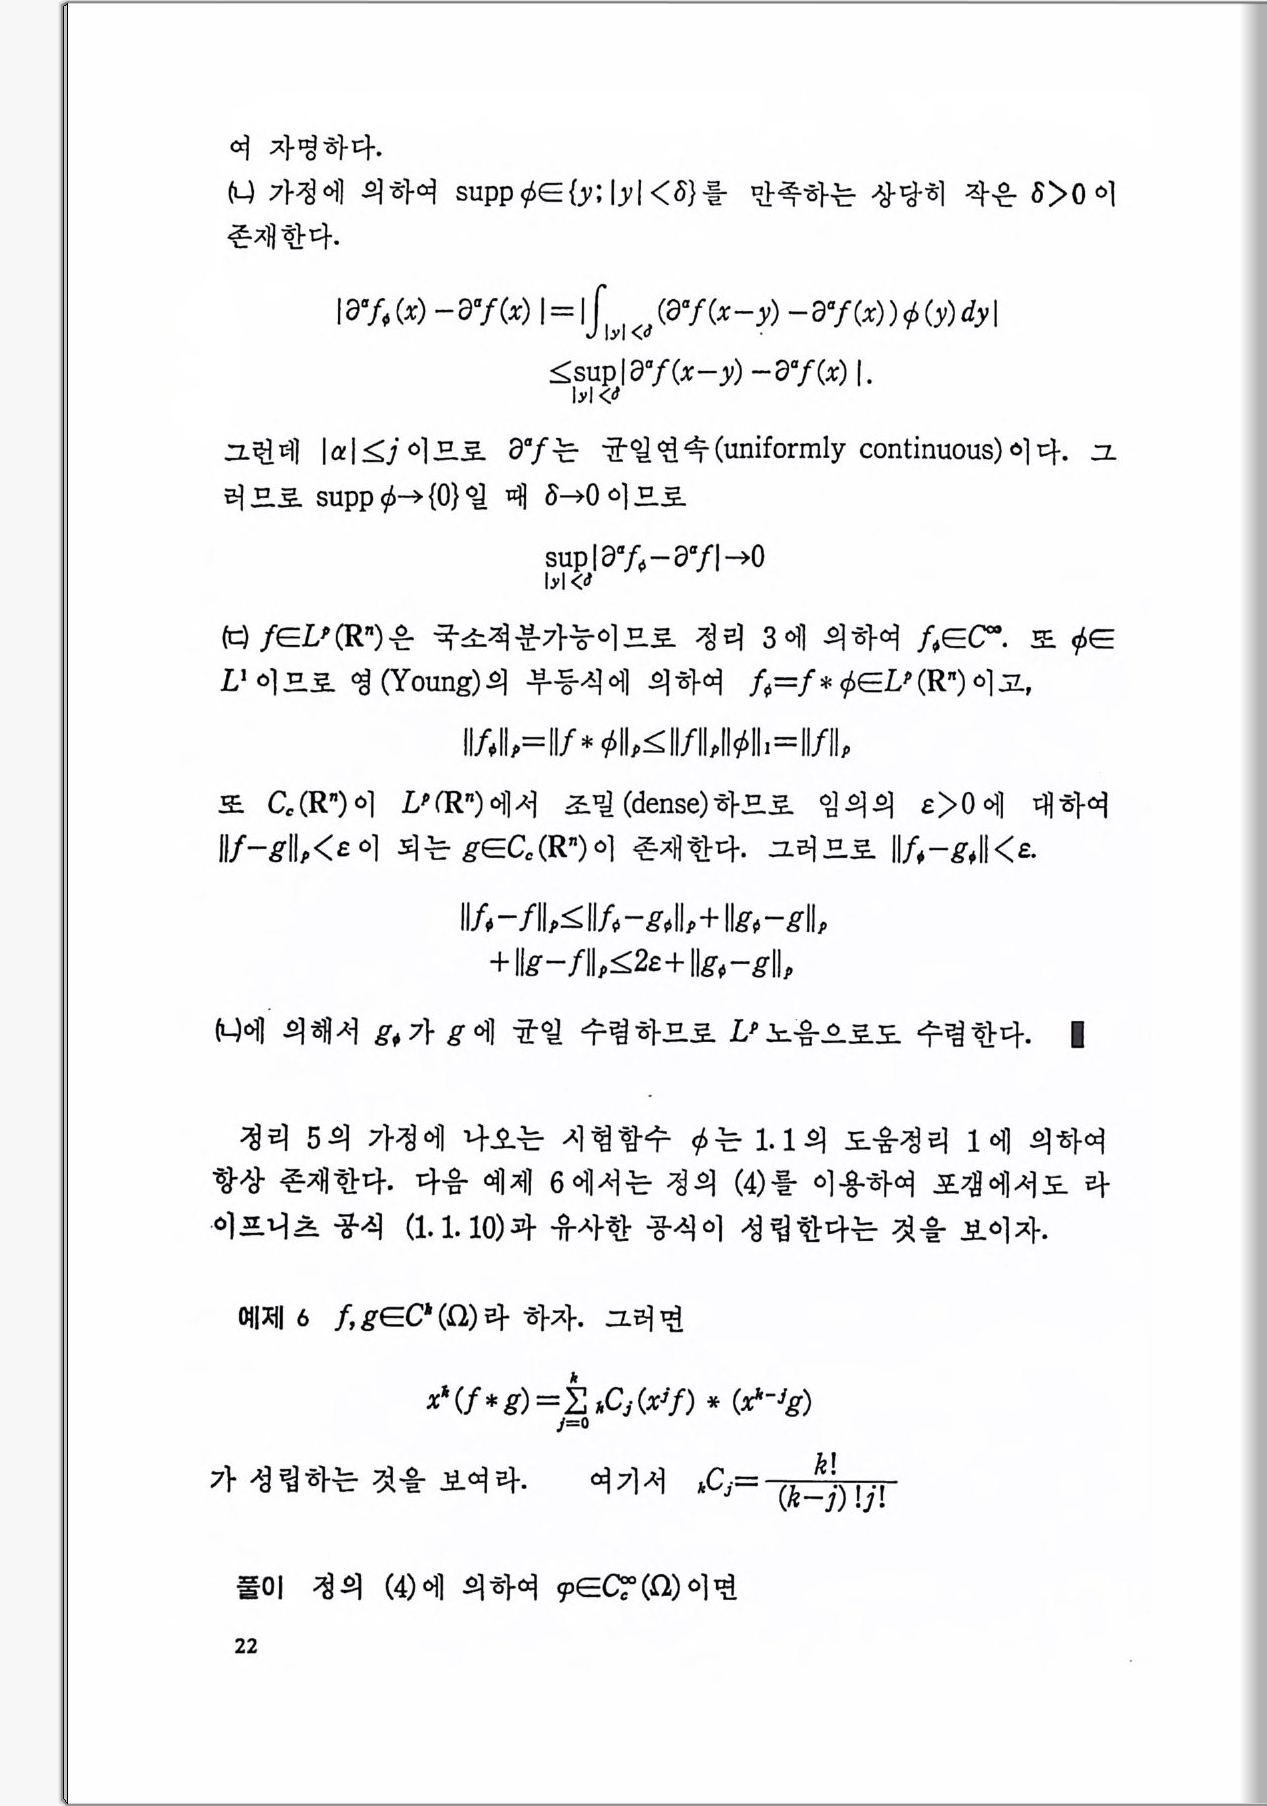 여 자명하다.
(ㄴ) 가정에 의하여 supp ϕ∈{y; |y|<δ}를 만족하는 상당히 작은 δ>0이
존재한다.
|∂ᵅf_ϕ(x)−∂ᵅf(x)|=|∫_{|y|<δ}(∂ᵅf(x−y)−∂ᵅf(x))ϕ(y)dy|
≤sup_{|y|<δ}|∂ᵅf(x−y)−∂ᵅf(x)|.
그런데 |α|≤j이므로 ∂ᵅf는 균일연속(uniformly continuous)이다. 그
러므로 supp ϕ→{0}일 때 δ→0이므로
sup_{|y|<δ}|∂ᵅf_ϕ−∂ᵅf|→0
(ㄷ) f∈Lᵖ(Rⁿ)은 국소적분가능이므로 정리 3에 의하여 f_ϕ∈C^∞. 또 ϕ∈
L¹이므로 영(Young)의 부등식에 의하여 f_ϕ=f*ϕ∈Lᵖ(Rⁿ)이고,
‖f_ϕ‖_p=‖f*ϕ‖_p≤‖f‖_p‖ϕ‖₁=‖f‖_p
또 C_c(Rⁿ)이 Lᵖ(Rⁿ)에서 조밀(dense)하므로 임의의 ε>0에 대하여
‖f−g‖_p<ε이 되는 g∈C_c(Rⁿ)이 존재한다. 그러므로 ‖f_ϕ−g_ϕ‖<ε.
‖f_ϕ−f‖_p≤‖f_ϕ−g_ϕ‖_p+‖g_ϕ−g‖_p
+‖g−f‖_p≤2ε+‖g_ϕ−g‖_p
(ㄴ)에 의해서 g_ϕ가 g에 균일 수렴하므로 Lᵖ노음으로도 수렴한다. ▮
정리 5의 가정에 나오는 시험함수 ϕ는 1.1의 도움정리 1에 의하여
항상 존재한다. 다음 예제 6에서는 정의 (4)를 이용하여 포갬에서도 라
이프니츠 공식 (1.1.10)과 유사한 공식이 성립한다는 것을 보이자.
예제 6 f, g∈Cᵏ(Ω)라 하자. 그러면
xᵏ(f*g)=∑_{j=0}^{k} ₖC_j(xʲf) * (xᵏ⁻ʲg)
가 성립하는 것을 보여라. 여기서 ₖC_j=k!/((k−j)!j!)
풀이 정의 (4)에 의하여 φ∈C_c^∞(Ω)이면
22